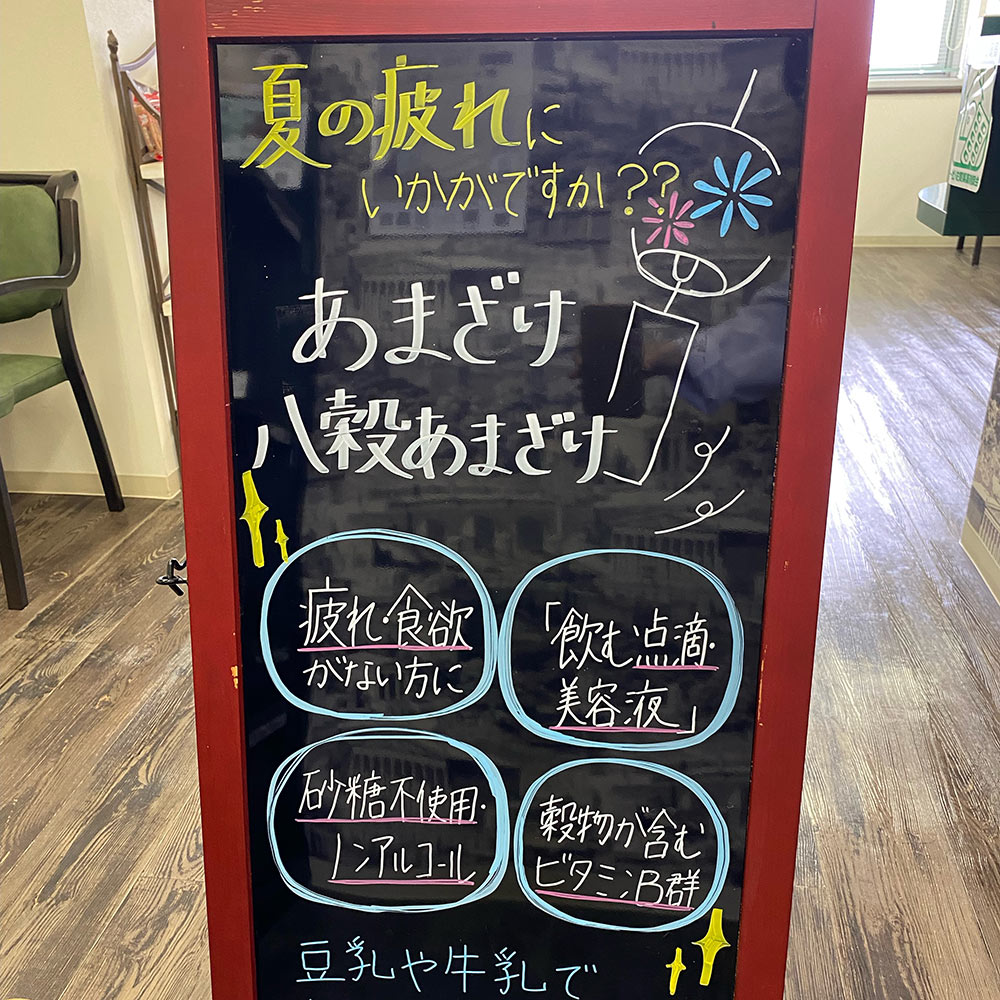 夏の疲れに
いかがですか??
あまざけ
八穀あまざけ
疲れ・食欲
がない方に
「飲む点滴・
美容液」
砂糖不使用・
ノンアルコール
穀物が含む
ビタミンB群
豆乳や牛乳で